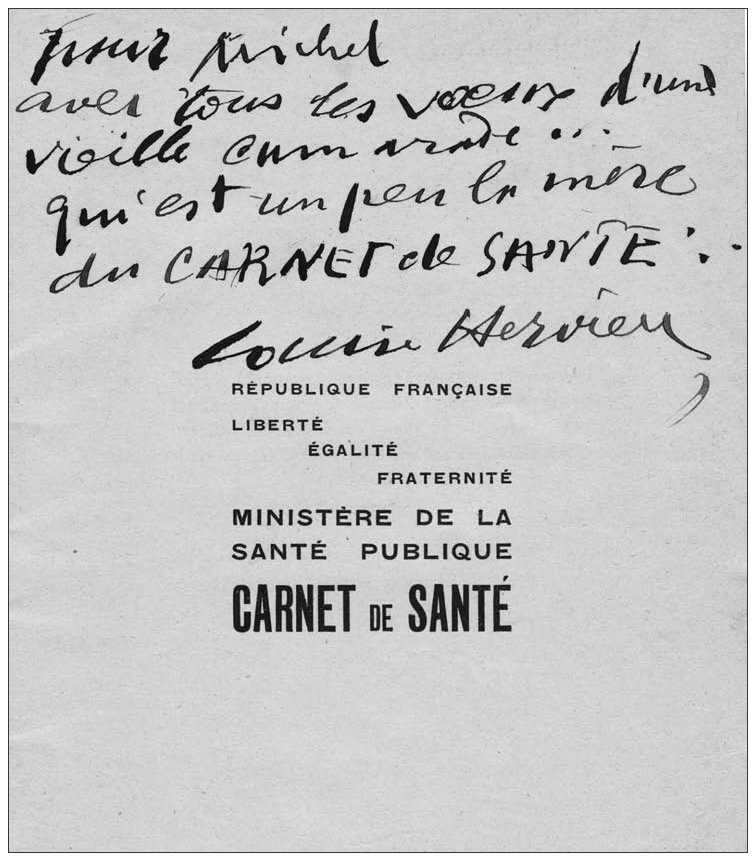 pour Michel
avec tous les vœux d'une
vieille camarade...
qui est un peu la mère
du CARNET de SANTÉ...
Louise Hervieu
RÉPUBLIQUE FRANÇAISE
LIBERTÉ
ÉGALITÉ
FRATERNITÉ
MINISTÈRE DE LA
SANTÉ PUBLIQUE
CARNET DE SANTÉ